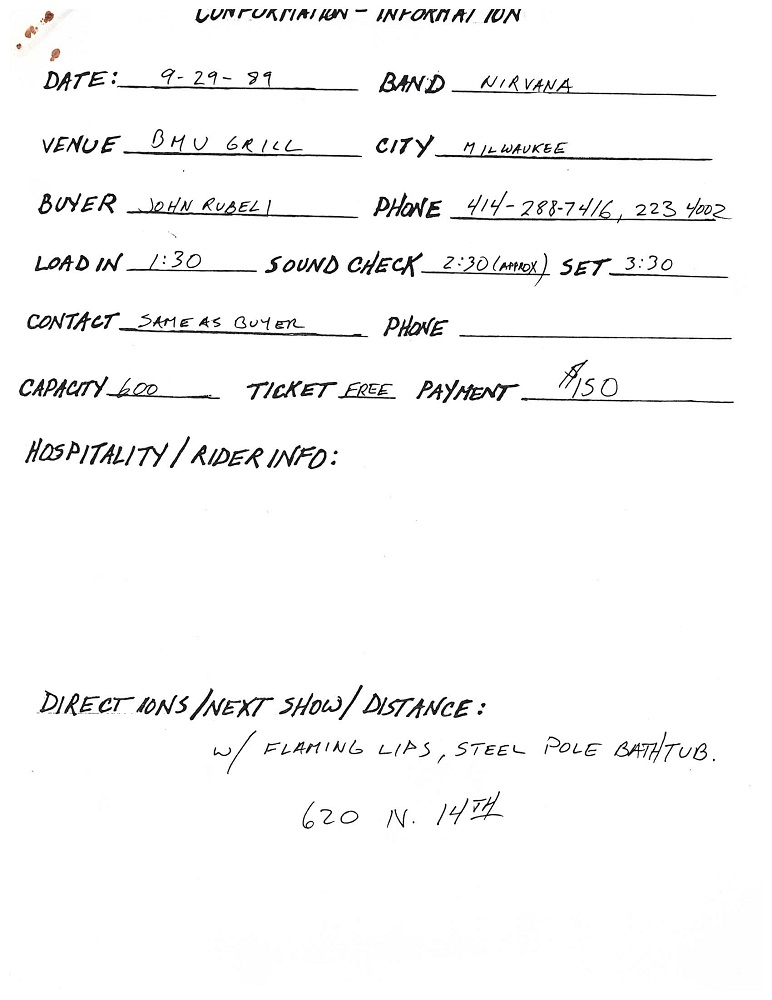 CONFORMATION - INFORMATION
DATE: 9-29-89 BAND NIRVANA
VENUE BMU GRILL CITY MILWAUKEE
BUYER JOHN RUBELI PHONE 414-288-7416, 223 4002
LOAD IN 1:30 SOUND CHECK 2:30 (APPROX) SET 3:30
CONTACT SAME AS BUYER PHONE
CAPACITY 600 TICKET FREE PAYMENT $150
HOSPITALITY / RIDER INFO:
DIRECTIONS/NEXT SHOW/DISTANCE:
w/ FLAMING LIPS, STEEL POLE BATHTUB.
620 N. 14TH